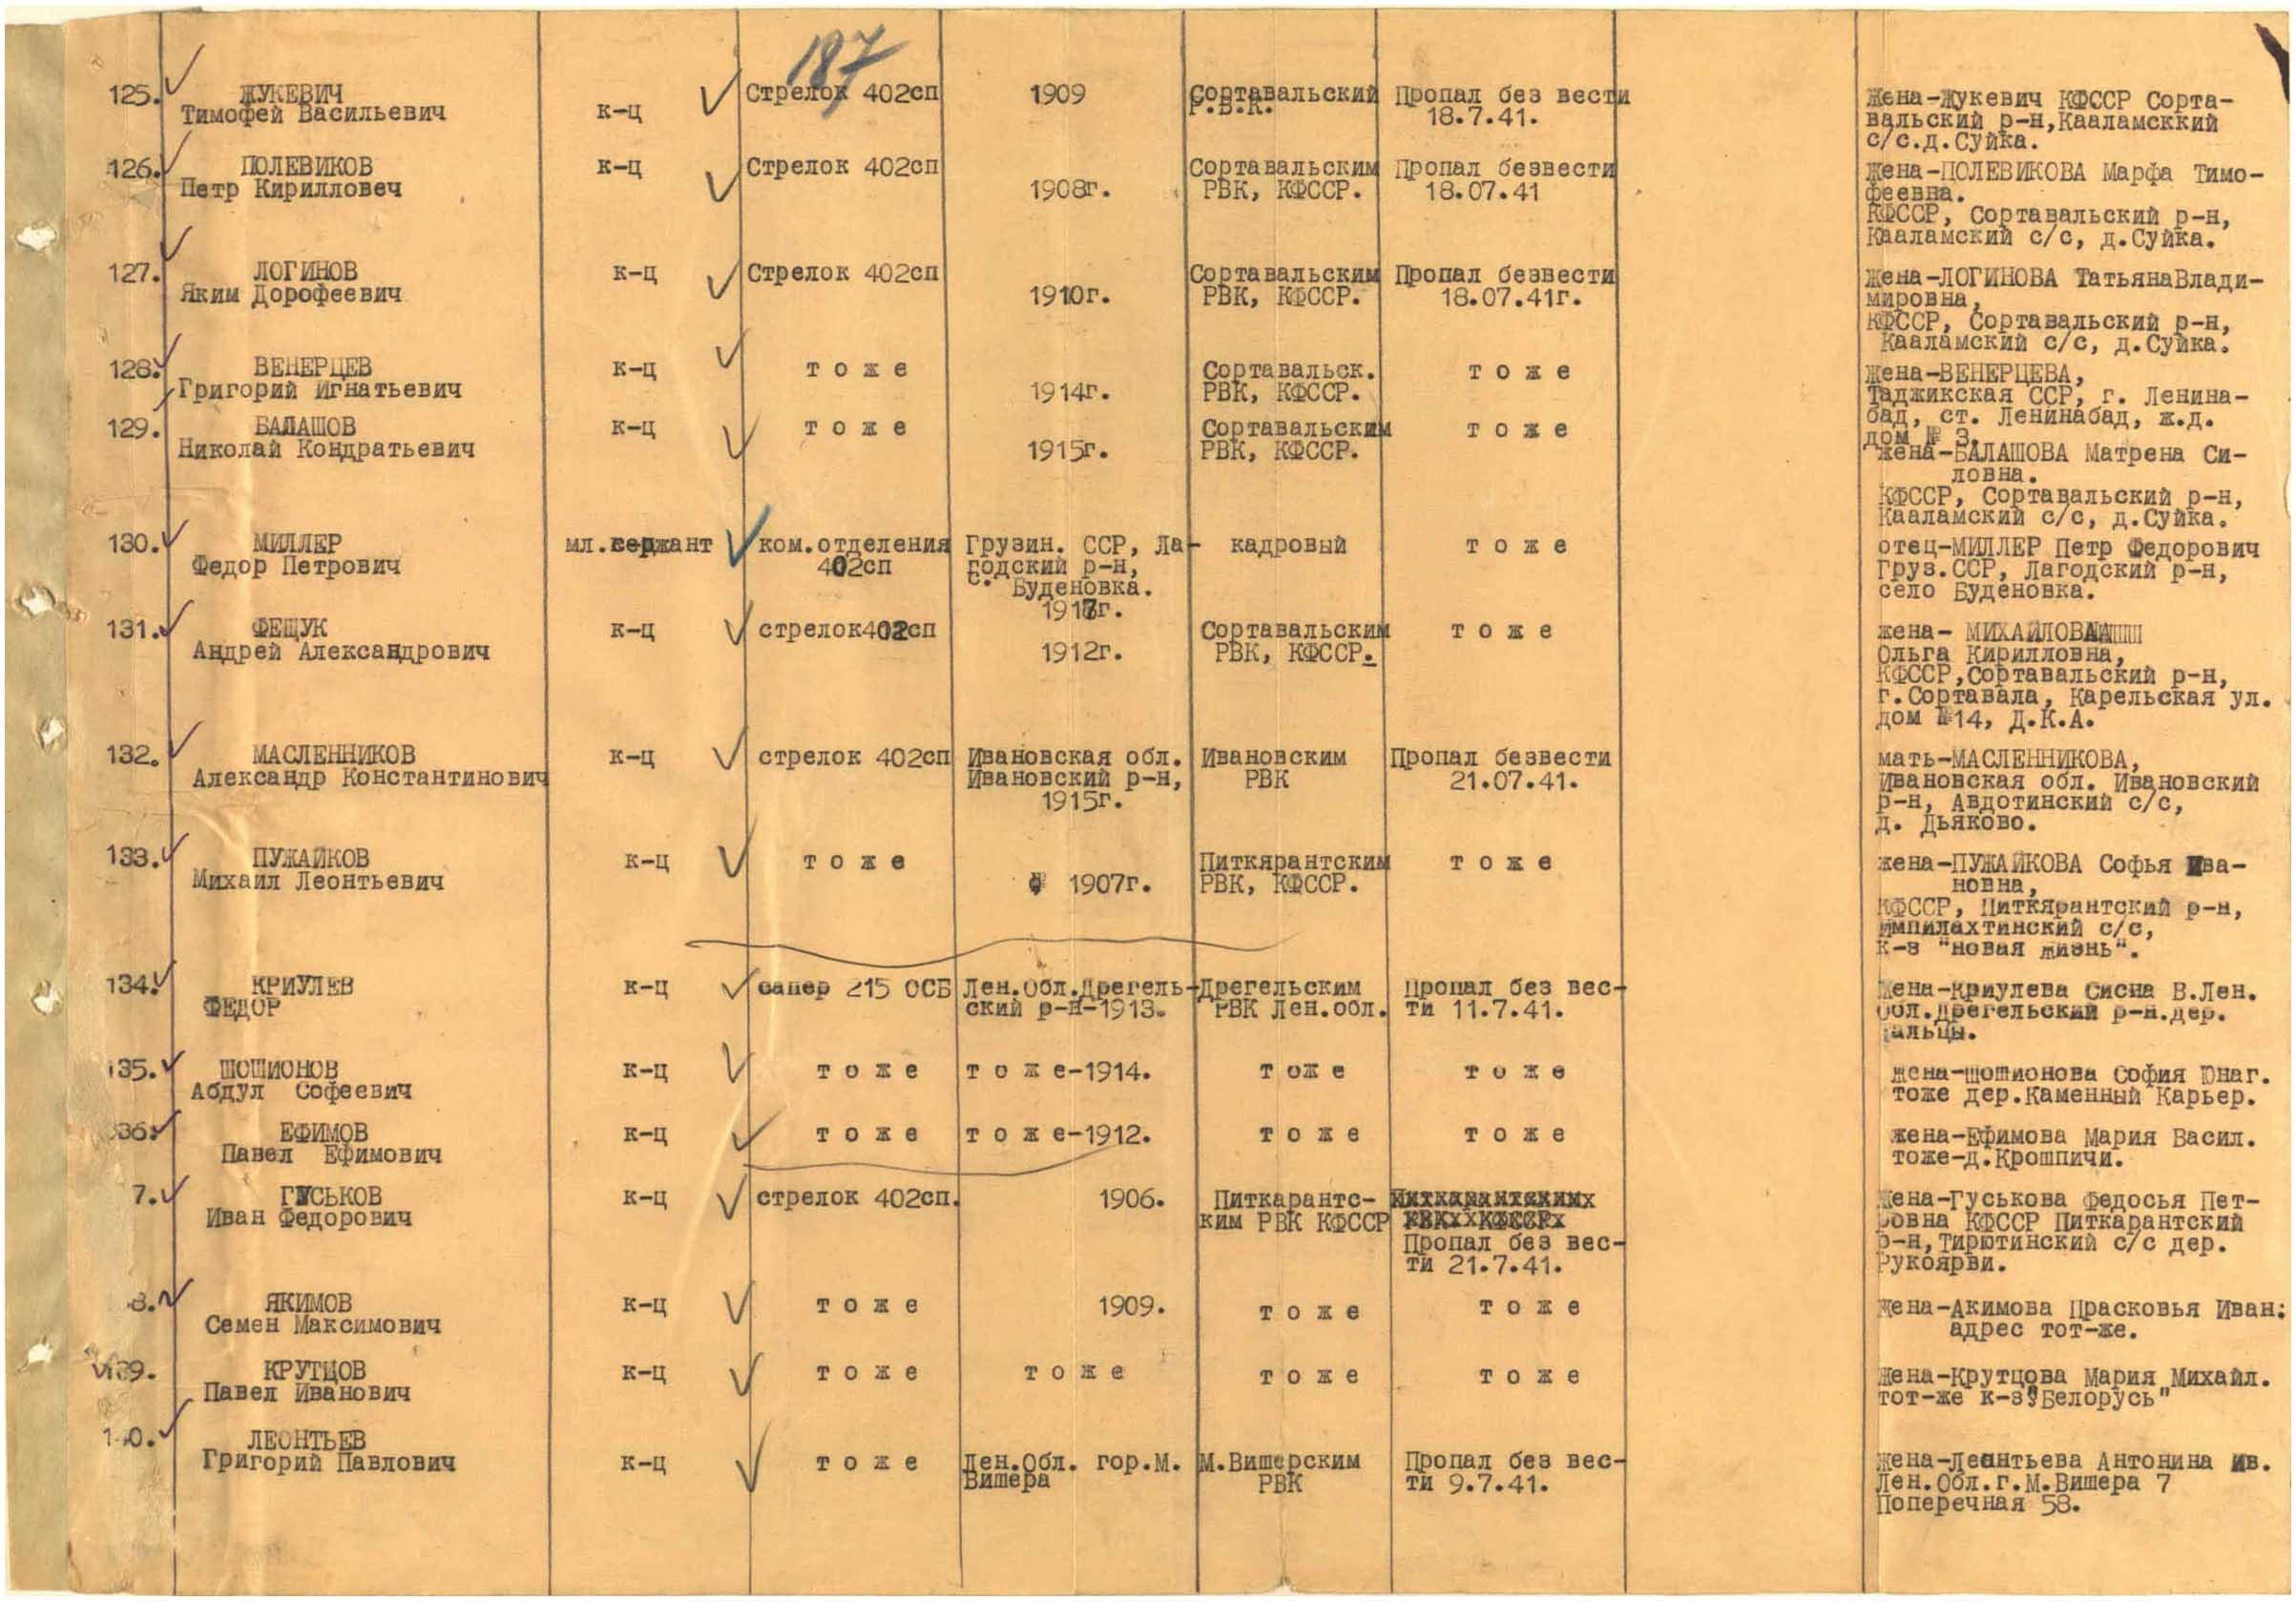 187
125. ЖУКЕВИЧ
Тимофей Васильевич
к-ц
Стрелок 402сп
1909
Сортавальский
Р.В.К.
Пропал без вести
18.7.41.
Жена-Жукевич КФССР Сорта-
вальский р-н,Кааламсккий
с/с.д.Суйка.
126. ПОЛЕВИКОВ
Петр Кирилловеч
к-ц
Стрелок 402сп
1908г.
Сортавальским
РВК, КФССР.
Пропал безвести
18.07.41
жена-ПОЛЕВИКОВА Марфа Тимо-
феевна.
КФССР, Сортавальский р-н,
Кааламский с/с, д.Суйка.
127. ЛОГИНОВ
Яким Дорофеевич
к-ц
Стрелок 402сп
1910г.
Сортавальским
РВК, КФССР.
Пропал безвести
18.07.41г.
жена-ЛОГИНОВА ТатьянаВлади-
мировна,
КФССР, Сортавальский р-н,
Кааламский с/с, д.Суйка.
128. ВЕНЕРЦЕВ
Григорий Игнатьевич
к-ц
т о ж е
1914г.
Сортавальск.
РВК, КФССР.
т о ж е
жена-ВЕНЕРЦЕВА,
Таджикская ССР, г. Ленина-
бад, ст. Ленинабад, ж.д.
дом № 3.
129. БАЛАШОВ
Николай Кондратьевич
к-ц
т о ж е
1915г.
Сортавальским
РВК, КФССР.
т о ж е
жена-БАЛАШОВА Матрена Си-
ловна.
КФССР, Сортавальский р-н,
Кааламский с/с, д.Суйка.
130. МИЛЛЕР
Федор Петрович
мл.сержант
ком.отделения
402сп
Грузин. ССР, Ла-
годский р-н,
с. Буденовка.
1917г.
кадровый
т о ж е
отец-МИЛЛЕР Петр Федорович
Груз.ССР, Лагодский р-н,
село Буденовка.
131. ФЕЩУК
Андрей Александрович
к-ц
стрелок402сп
1912г.
Сортавальским
РВК, КФССР.
т о ж е
жена- МИХАЙЛОВА
Ольга Кирилловна,
КФССР,Сортавальский р-н,
г.Сортавала, Карельская ул.
дом №14, Д.К.А.
132. МАСЛЕННИКОВ
Александр Константинович
к-ц
стрелок 402сп
Ивановская обл.
Ивановский р-н,
1915г.
Ивановским
РВК
Пропал безвести
21.07.41.
мать-МАСЛЕННИКОВА,
Ивановская обл. Ивановский
р-н, Авдотинский с/с,
д. Дьяково.
133. ПУЖАЙКОВ
Михаил Леонтьевич
к-ц
т о ж е
1907г.
Питкярантским
РВК, КФССР.
т о ж е
жена-ПУЖАЙКОВА Софья Ива-
новна,
КФССР, Питкярантский р-н,
Импилахтинский с/с,
К-з "новая жизнь".
134. КРИУЛЕВ
ФЕДОР
к-ц
сапер 215 ОСБ
Лен.Обл.Дрегель-
ский р-н-1913.
Дрегельским
РВК Лен.обл.
Пропал без вес-
ти 11.7.41.
Жена-Криулева Сисна В.Лен.
Обл.Дрегельский р-н.дер.
альцы.
135. ШОШИОНОВ
Абдул Софеевич
к-ц
т о ж е
т о ж е-1914.
т о ж е
т о ж е
жена-Шошионова София Юнаг.
тоже дер.Каменный Карьер.
36. ЕФИМОВ
Павел Ефимович
к-ц
т о ж е
т о ж е-1912.
т о ж е
т о ж е
жена-Ефимова Мария Васил.
тоже-д.Крошпичи.
7. ГУСЬКОВ
Иван Федорович
к-ц
стрелок 402сп.
1906.
Питкарантс-
ким РВК КФССР
Пропал без вес-
ти 21.7.41.
Жена-Гуськова Федосья Пет-
ровна КФССР Питкарантский
р-н,Тирютинский с/с дер.
Рукоярви.
8. ЯКИМОВ
Семен Максимович
к-ц
т о ж е
1909.
т о ж е
т о ж е
Жена-Акимова Прасковья Иван:
адрес тот-же.
139. КРУТЦОВ
Павел Иванович
к-ц
т о ж е
т о ж е
т о ж е
т о ж е
Жена-Крутцова Мария Михайл.
тот-же к-з"Белорусь"
1 0. ЛЕОНТЬЕВ
Григорий Павлович
к-ц
т о ж е
Лен.Обл. гор.М.
Вишера
М.Вишерским
РВК
Пропал без вес-
ти 9.7.41.
Жена-Леонтьева Антонина Ив.
Лен.Обл.г.М.Вишера 7
Поперечная 58.